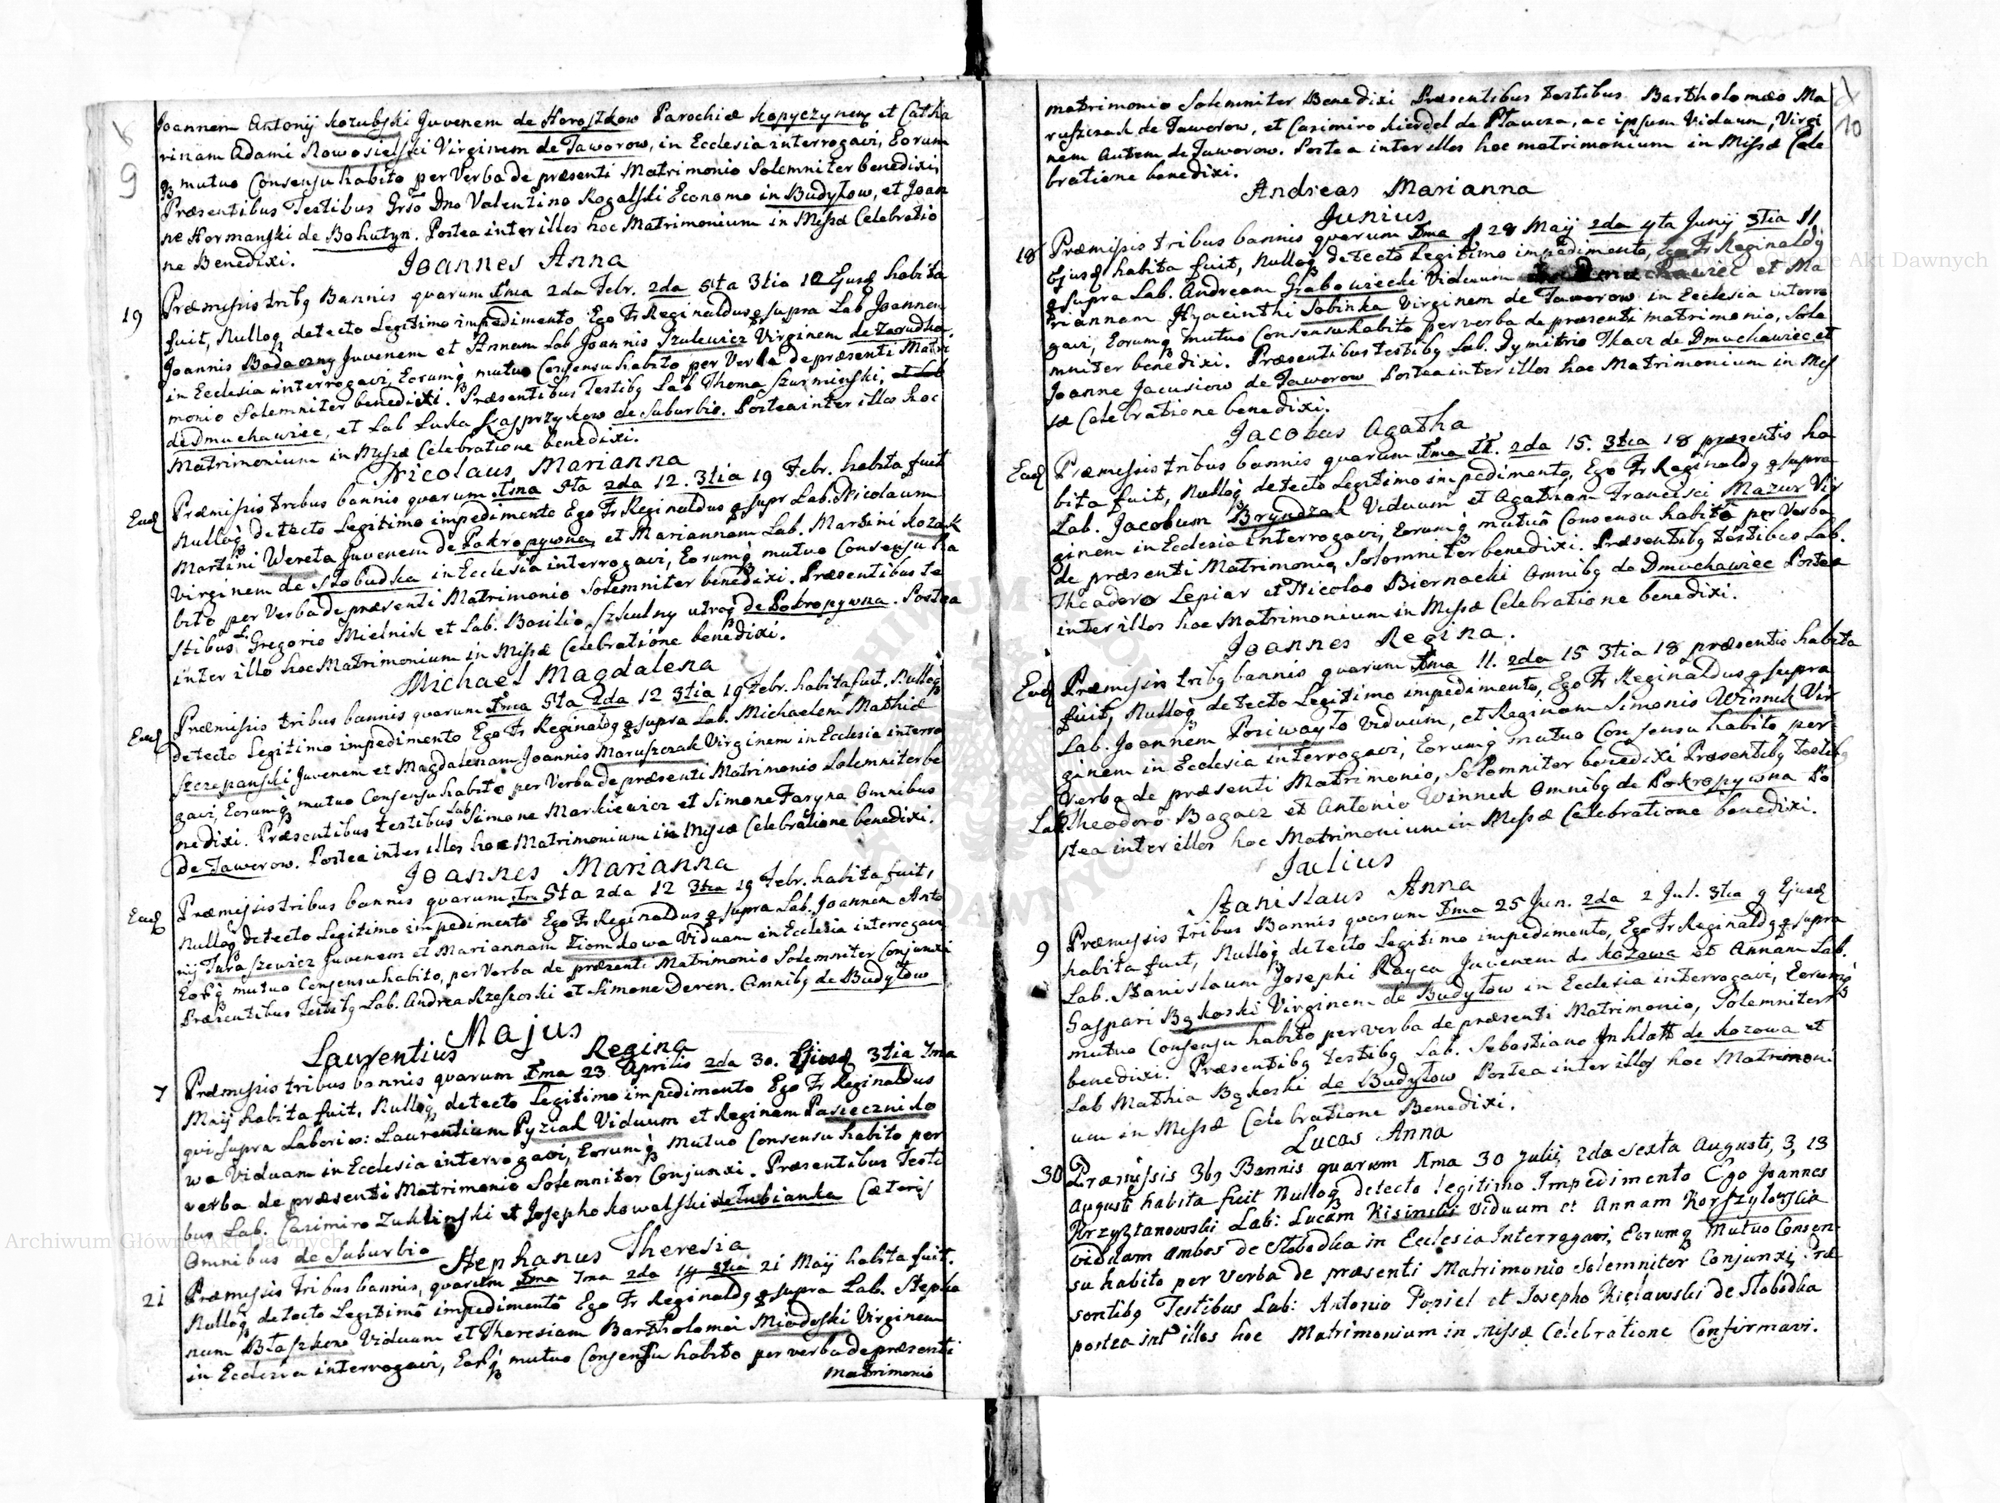 9
Joannem Antonij Kozubski Juvenem de Horoszkow Parochiæ Kopyczynen et Catha
rinam Adami Nowosielski Virginem de Taworow, in Ecclesia interrogavi, Eorum
q; mutuo Consensu habito per Verba de præsenti Matrimonio Solemniter benedixi,
Præsentibus Testibus Grso Dno Valentino Rogalski Economo in Budyłow, et Joan
ne Hormanski de Bohutyn. Postea inter illos hoc Matrimonium in Missæ Celebratio
ne Benedixi.
Joannes Anna
19 Præmissis tribq Bannis quarum Ima 2da Febr. 2da 5ta 3tia 12 Ejusq habita
fuit, Nulloq detecto Legitimo impedimento Ego Fr Reginaldus q supra Lab Joannem
Joannis Badaczny Juvenem et Annam Lab Joannis Szulewicz Virginem de Zarudka
in Ecclesia interrogavi, Eorumq mutuo Consensu habito per Verba de præsenti Matri
monio Solemniter benedixi. Præsentibus Testibq Lab Thoma Szurminski,
de Dmuchawiec, et Lab Luka Kasprzykow de Suburbio. Postea inter illos hoc
Matrimonium in Missæ Celebratione benedixi.
Nicolaus Marianna
Eadq Præmissis tribus bannis quarum Ima 5ta 2da 12. 3tia 19 Febr. habita fuit
Nulloq detecto Legitimo impedimento Ego Fr Reginaldus q supr Lab. Nicolaum
Martini Wereta Juvenem de Pokropywna et Mariannam Lab. Martini Kozak
Virginem de Słobudka in Ecclesia interrogavi, Eorumq mutuo Consensu ha
bito per Verba de præsenti Matrimonio Solemniter benedixi. Præsentibus te
stibus L. Gregorio Mielnik et Lab. Basilio Szkulny utroq de Pokropywna. Postea
inter illo hoc Matrimonium in Missæ Celebratione benedixi.
Michael Magdalena
Eadq Præmissis tribus bannis quarum Ima 5ta 2da 12 3tia 19 Febr. habita fuit, Nulloq
detecto Legitimo impedimento Ego Fr Reginaldq q supra Lab. Michaelem Mathiæ
Szczepanski Juvenem et Magdalenam Joannis Maruszczak Virginem in Ecclesia interro
gavi, Eorumq mutuo Consensu habito per Verba de præsenti Matrimonio Solemniter be
nedixi. Præsentibus testibus Lab Simone Markiewicz et Simone Faryna Omnibus
de Taworow. Postea inter illos hoc Matrimonium in Missæ Celebratione benedixi.
Joannes Marianna
Eadq Præmissis tribus bannis quarum Im 5ta 2da 12 3tia 19 Febr. habita fuit,
Nulloq detecto Legitimo impedimento Ego Fr Reginaldus q supra Lab. Joannem Anto
nij Juraszewicz Juvenem et Mariannam Ziomkowa Viduam in Ecclesia interrogavi
Eorq mutuo Consensu habito, per Verba de præsenti Matrimonio Solemniter Conjunxi
Præsentibus Testibq Lab. Andrea Rzeskoski et Simone Deren. Omnibq de Budyłow
Majus
Laurentius Regina
7 Præmissis tribus bannis quarum Ima 23 Aprilis 2da 30. Ejusq 3tia 7ma
Maij habita fuit, Nulloq detecto Legitimo impedimento Ego Fr Reginaldus
qui supra Laborio: Laurentium Pyziak Viduum et Reginam Pasieczniko
wa Viduam in Ecclesia interrogavi, Eorumq mutuo Consensu habito per
verba de præsenti Matrimonio Solemniter Conjunxi. Præsentibus Testi
bus Lab. Casimiro Zuklinski et Josepho Kowalski de Łubianka Cæteris
Omnibus de Suburbio
Stephanus Theresia
21 Præmissis tribus bannis, quarum Ima 7ma 2da 14 3tia 21 Maij habita fuit.
Nulloq detecto Legitimo impedimento Ego Fr Reginaldq q supra Lab. Stepha
num Błaszkow Viduum et Theresiam Bartholomæi Miodoski Virginem
in Ecclesia interrogavi, Eorq mutuo Consensu habito per verba de præsenti
matrimonio
10
matrimonio Solemniter Benedixi Præsentibus testibus Bartholomæo Ma
ruszczak de Taworow, et Casimiro Kierdel de Płaucza, ac ipsum Viduum, Virgi
nem Autem de Taworow. Postea inter illos hoc matrimonium in Missæ Cele
bratione benedixi.
Andreas Marianna
Junius
18 Præmissis tribus bannis quarum Ima 28 Maij 2da 4ta Junij 3tia 11
Ejusq habita fuit, Nulloq detecto Legitimo impedimento, Ego Fr Reginaldq
q supra Lab. Andream Grabowiecki Viduum de Dmuchawiec et Ma
riannam Hyacinthi Sobinka Virginem de Taworow in Ecclesia interro
gavi, Eorumq mutuo Consensu habito per verba de præsenti matrimonio, Sole
mniter benedixi. Præsentibus testibq Lab. Dymitrio Tkacz de Dmuchawiec et
Joanne Jacusiow de Taworow Postea inter illos hoc Matrimonium in Mis
sæ Celebratione benedixi.
Jacobus Agatha
Eadq Præmissis tribus bannis quarum Ima 11. 2da 15. 3tia 18 præsentis ha
bita fuit, Nulloq detecto Legitimo impedimento, Ego Fr Reginaldq q supra
Lab. Jacobum Bryndzak Viduum et Agatham Francisci Mazur Vir
ginem in Ecclesia interrogavi, Eorumq mutuo Consensu habito per Verba
de præsenti Matrimonio, Solemniter benedixi. Præsentibq testibus Lab.
Theodoro Lepiar et Nicolao Biernacki Omnibq de Dmuchawiec Postea
inter illos hoc Matrimonium in Missæ Celebratione benedixi.
Joannes Regina.
Eadq Præmissis tribq bannis quarum Ima 11. 2da 15 3tia 18 præsentis habita
fuit, Nulloq detecto Legitimo impedimento, Ego Fr Reginaldus q supra
Lab. Joannem Poziwayło Viduum, et Reginam Simonis Winnik Vir
ginem in Ecclesia interrogavi, Eorumq mutuo Consensu habito per
Verba de præsenti Matrimonio, Solemniter benedixi Præsentibq Testibq
Lab Theodoro Bagacz et Antonio Winnik Omnibq de Pokropywna Po
stea inter illos hoc Matrimonium in Missæ Celebratione benedixi.
Julius
Stanislaus Anna
9 Præmissis tribus Bannis quarum Ima 25 Jun. 2da 2 Jul. 3tia 9 Ejusq
habita fuit, Nulloq detecto Legitimo impedimento, Ego Fr Reginaldq q supra
Lab. Stanislaum Josephi Rayca Juvenem de Kozowa et Annam Lab.
Gaspari Bąkoski Virginem de Budyłow in Ecclesia interrogavi, Eorumq
mutuo Consensu habito per verba de præsenti Matrimonio, Solemniter
benedixi. Præsentibq testibq Lab. Sebastiano Inhłatt de Kozowa et
Lab Mathia Bąkoski de Budyłow Postea inter illos hoc Matrimoni
um in Missæ Celebratione Benedixi.
Lucas Anna
30 Præmissis 3bq Bannis quarum Ima 30 Julij, 2da sexta Augusti, 3, 13
Augusti habita fuit Nulloq detecto legitimo Impedimento Ego Joannes
Krzyształowski Lab: Lucam Kisinski Viduum et Annam Korszyłowska
viduam ambos de Słobodka in Ecclesia Interrogavi, Eorumq Mutuo Consen
su habito per Verba de præsenti Matrimonio Solemniter Conjunxi, Præ
sentibq Testibus Lab: Antonio Popiel et Josepho Kielawski de Słobodka
postea int illos hoc Matrimonium in Missæ Celebratione Confirmavi.
Archiwum Główne Akt Dawnych
Archiwum Główne Akt Dawnych